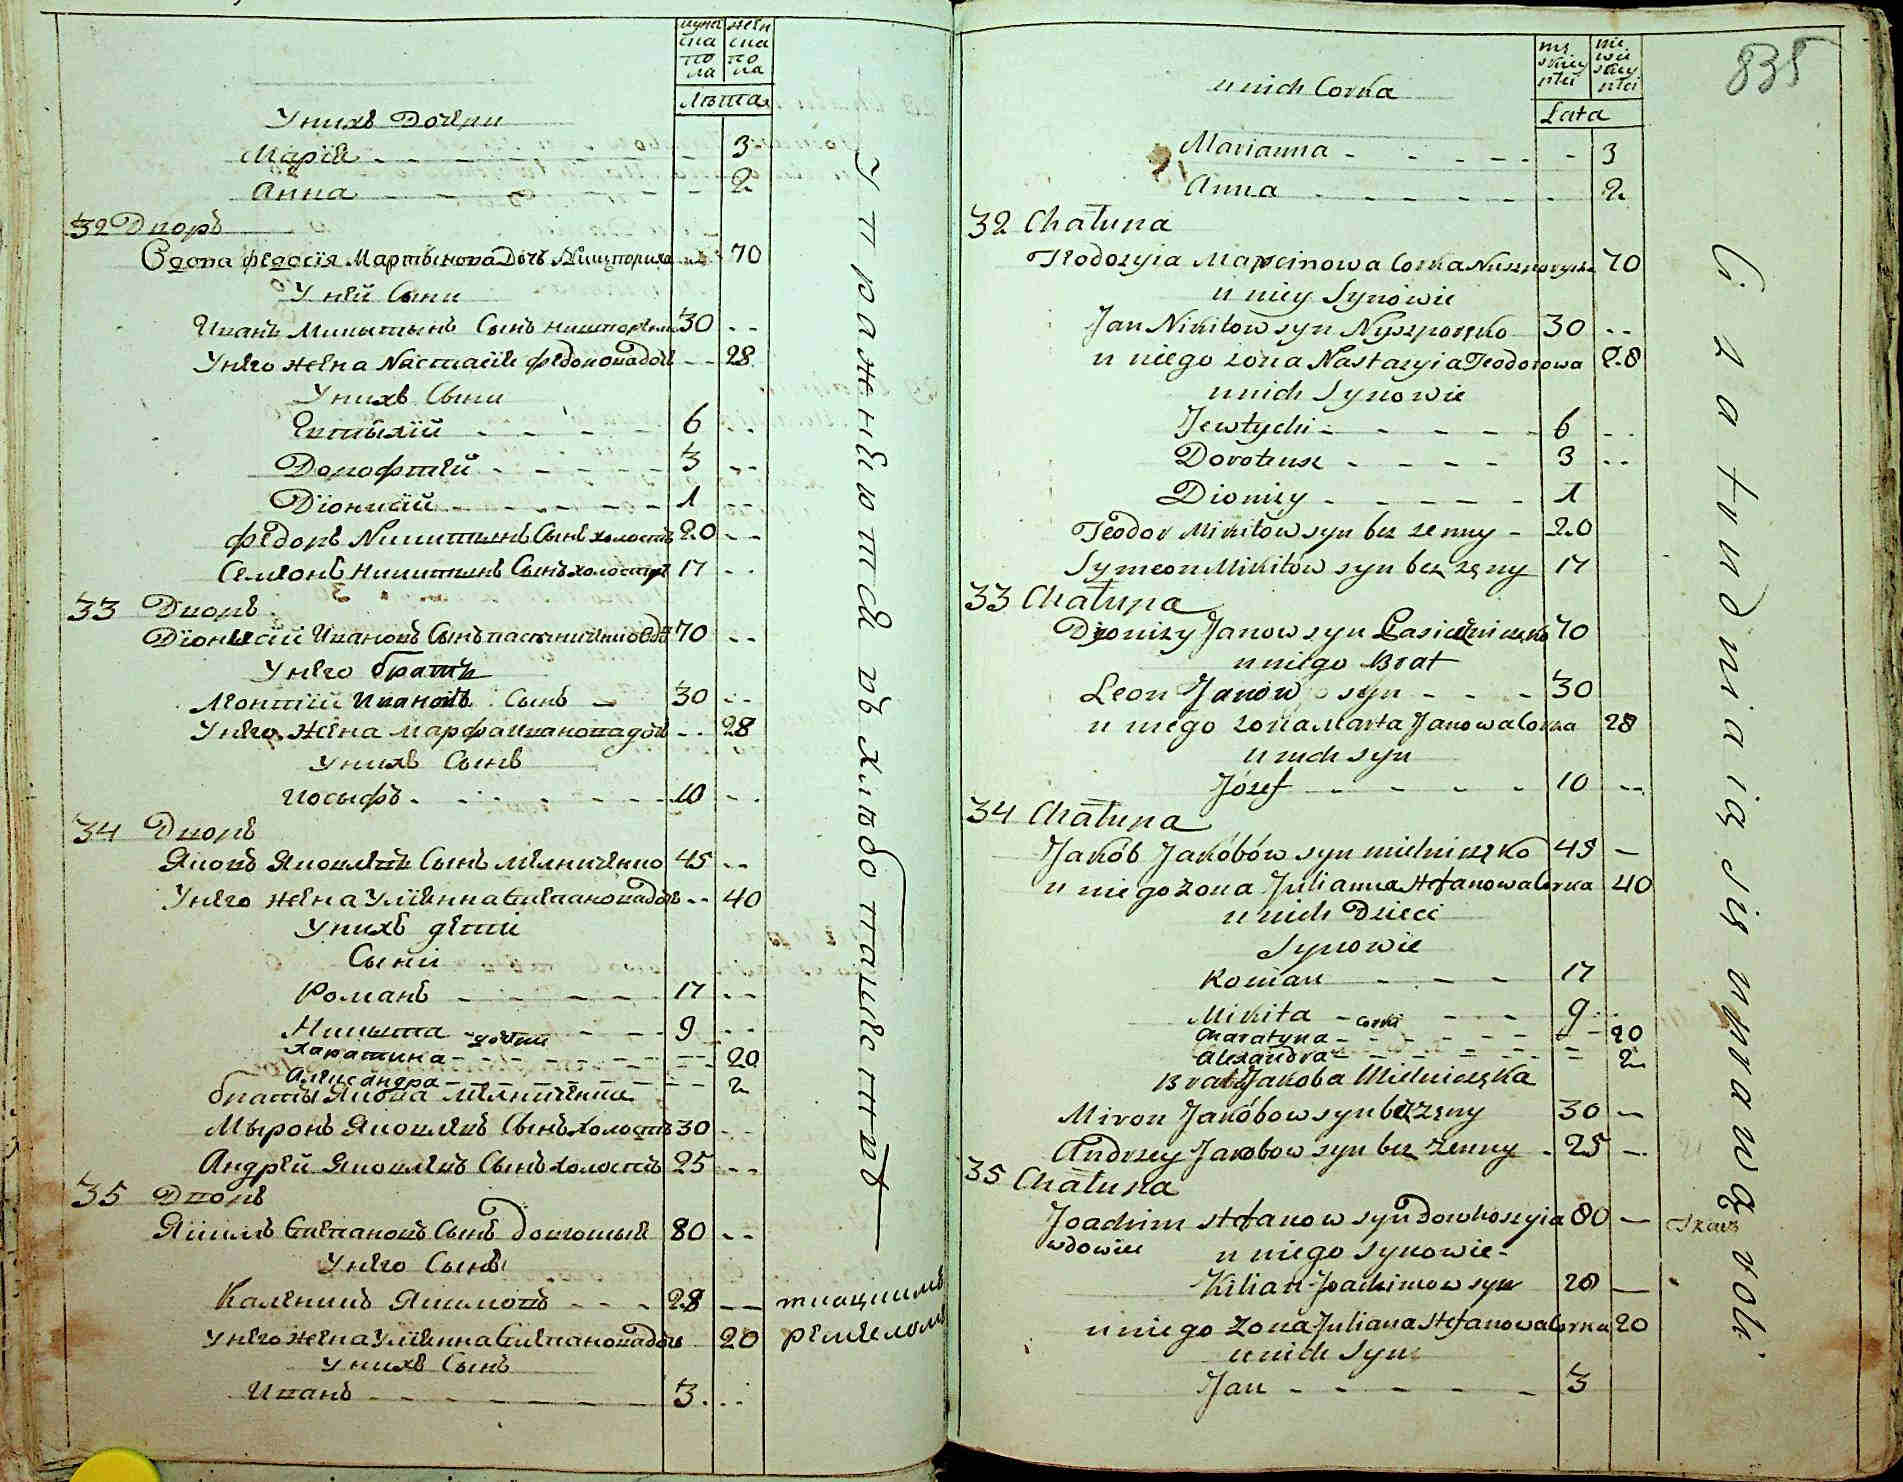 мужеска пола
женска пола
Лѣта
Унихъ Дочери
Марія - - - 3
Анна - - - 2
32 Дворъ
Вдова Федосія Мартынова Дочь - - 70
У ней Сыни
Иванъ Микытынъ Сынъ 30 - -
Унего жена Настасія Федорова доч - - 28
Унихъ Сыни
Евтыхій - - - 6 - -
Дорофтей - - - 3 - -
Діонисій - - - 1 - -
Федоръ Никитинъ Сынъ холостъ 20 - -
Семіонъ Никитинъ Сынъ холостъ 17 - -
33 Дворъ
Діонисій Ивановъ Сынъ 70 - -
Унего братъ
Леонтій Ивановъ Сынъ - 30 - -
Унего жена Марфа Иванова доч - - 28
Унихъ Сынъ
Иосыфъ - - - 10 - -
34 Дворъ
Яковъ Яковлевъ Сынъ Мелниченко 45 - -
Унего жена Уліянна Степанова доч - - 40
Унихъ дети
Сыни
Романъ - - - 17 - -
Никита - - - 9 - -
дочки
Харатина - - - 20
Александра - - - 2
браты Якова Мелниченка
Мыронъ Яковлевъ Сынъ холостъ 30 - -
Андрей Яковлевъ Сынъ холостъ 25 - -
35 Дворъ
Якимъ Степановъ Сынъ 80 - -
Унего Сынъ
Каленикъ Якимовъ - - - 28 - - ткацкимъ
Унего жена Уліянна Степанова доч 20 ремесломъ
Унихъ Сынъ
Иванъ - - - 3 - -
Упражняются въ хлебопашествѣ
835
Lata
u nich Corka
Marianna - - - 3
Anna - - - 2
32 Chałupa
Teodozyia Marcinowa Corka 70
u niey Synowie
Jan Nikitow syn 30 - -
u niego zona Nastazyia Teodorowa 28
u nich Synowie
Jewtychi - - - 6 - -
Doroteusz - - - 3 - -
Dionizy - - - 1
Teodor Mikitow syn bez zenny - 20
Symeon Mikitów syn bez żęny 17
33 Chałupa
Dionizy Janow syn 70
u niego Brat
Leon Janów syn - - - 30
u niego zona Marta Janowa Corka 28
u nich syn
Józef - - - 10 - -
34 Chałupa
Jakób Jakóbów syn mielniczęko 45 —
u niego zona Julianna Stefanowa Corka 40
u nich Dzieci
Synowie
Roman - - - 17
Mikita - - - 9 - -
Corki
Charatyna - - - 20
Alexandra - - - 2
Braty Jakoba Mielniczęka
Miron Jakóbow syn bez żęny 30 —
Andrzey Jakobow syn bez żenny - 25 —
35 Chałupa
Joachim Stefanow syn 80 — Tkacz
wdowiec u niego synowie -
Kilian Joachimow syn 28 —
u niego zona Juliana Stefanowa Corka 20
u nich Syn
Jan - - - 3
Zatrudniaią się uprawą roli